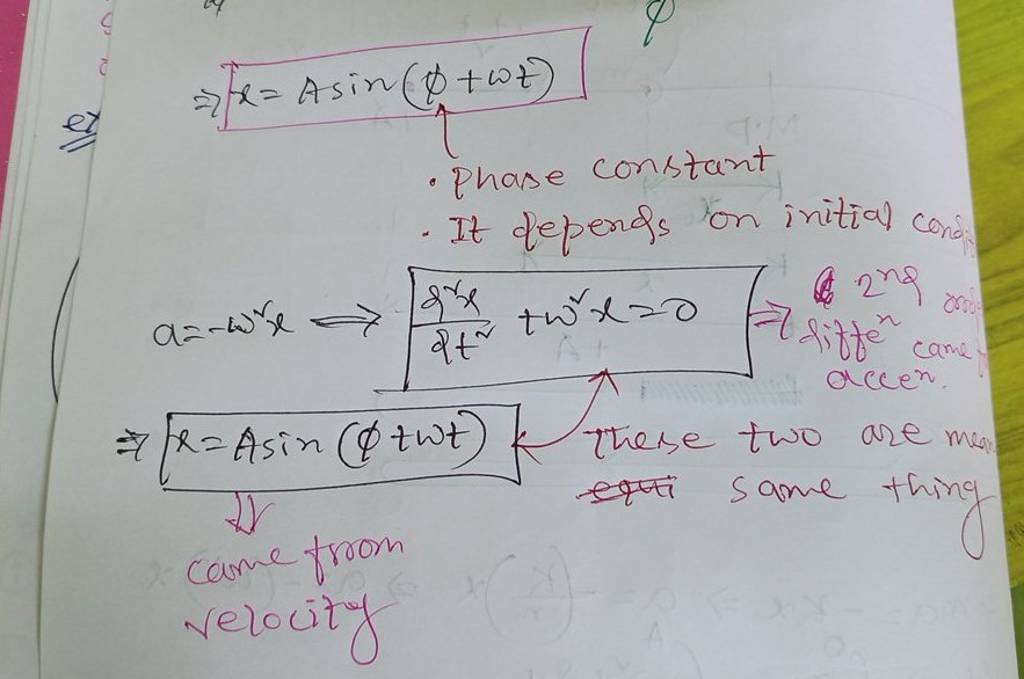 ⇒ x = A sin (φ + ωt)
ex
φ
• Phase constant
• It depends on initial condi
a = -ω²x ⇒ d²x/dt² + ω²x = 0 ⇒ 2nd
differⁿ came
accen.
⇒ x = A sin (φ + ωt)
These two are mean
equi same thing
⇓
came from
velocity